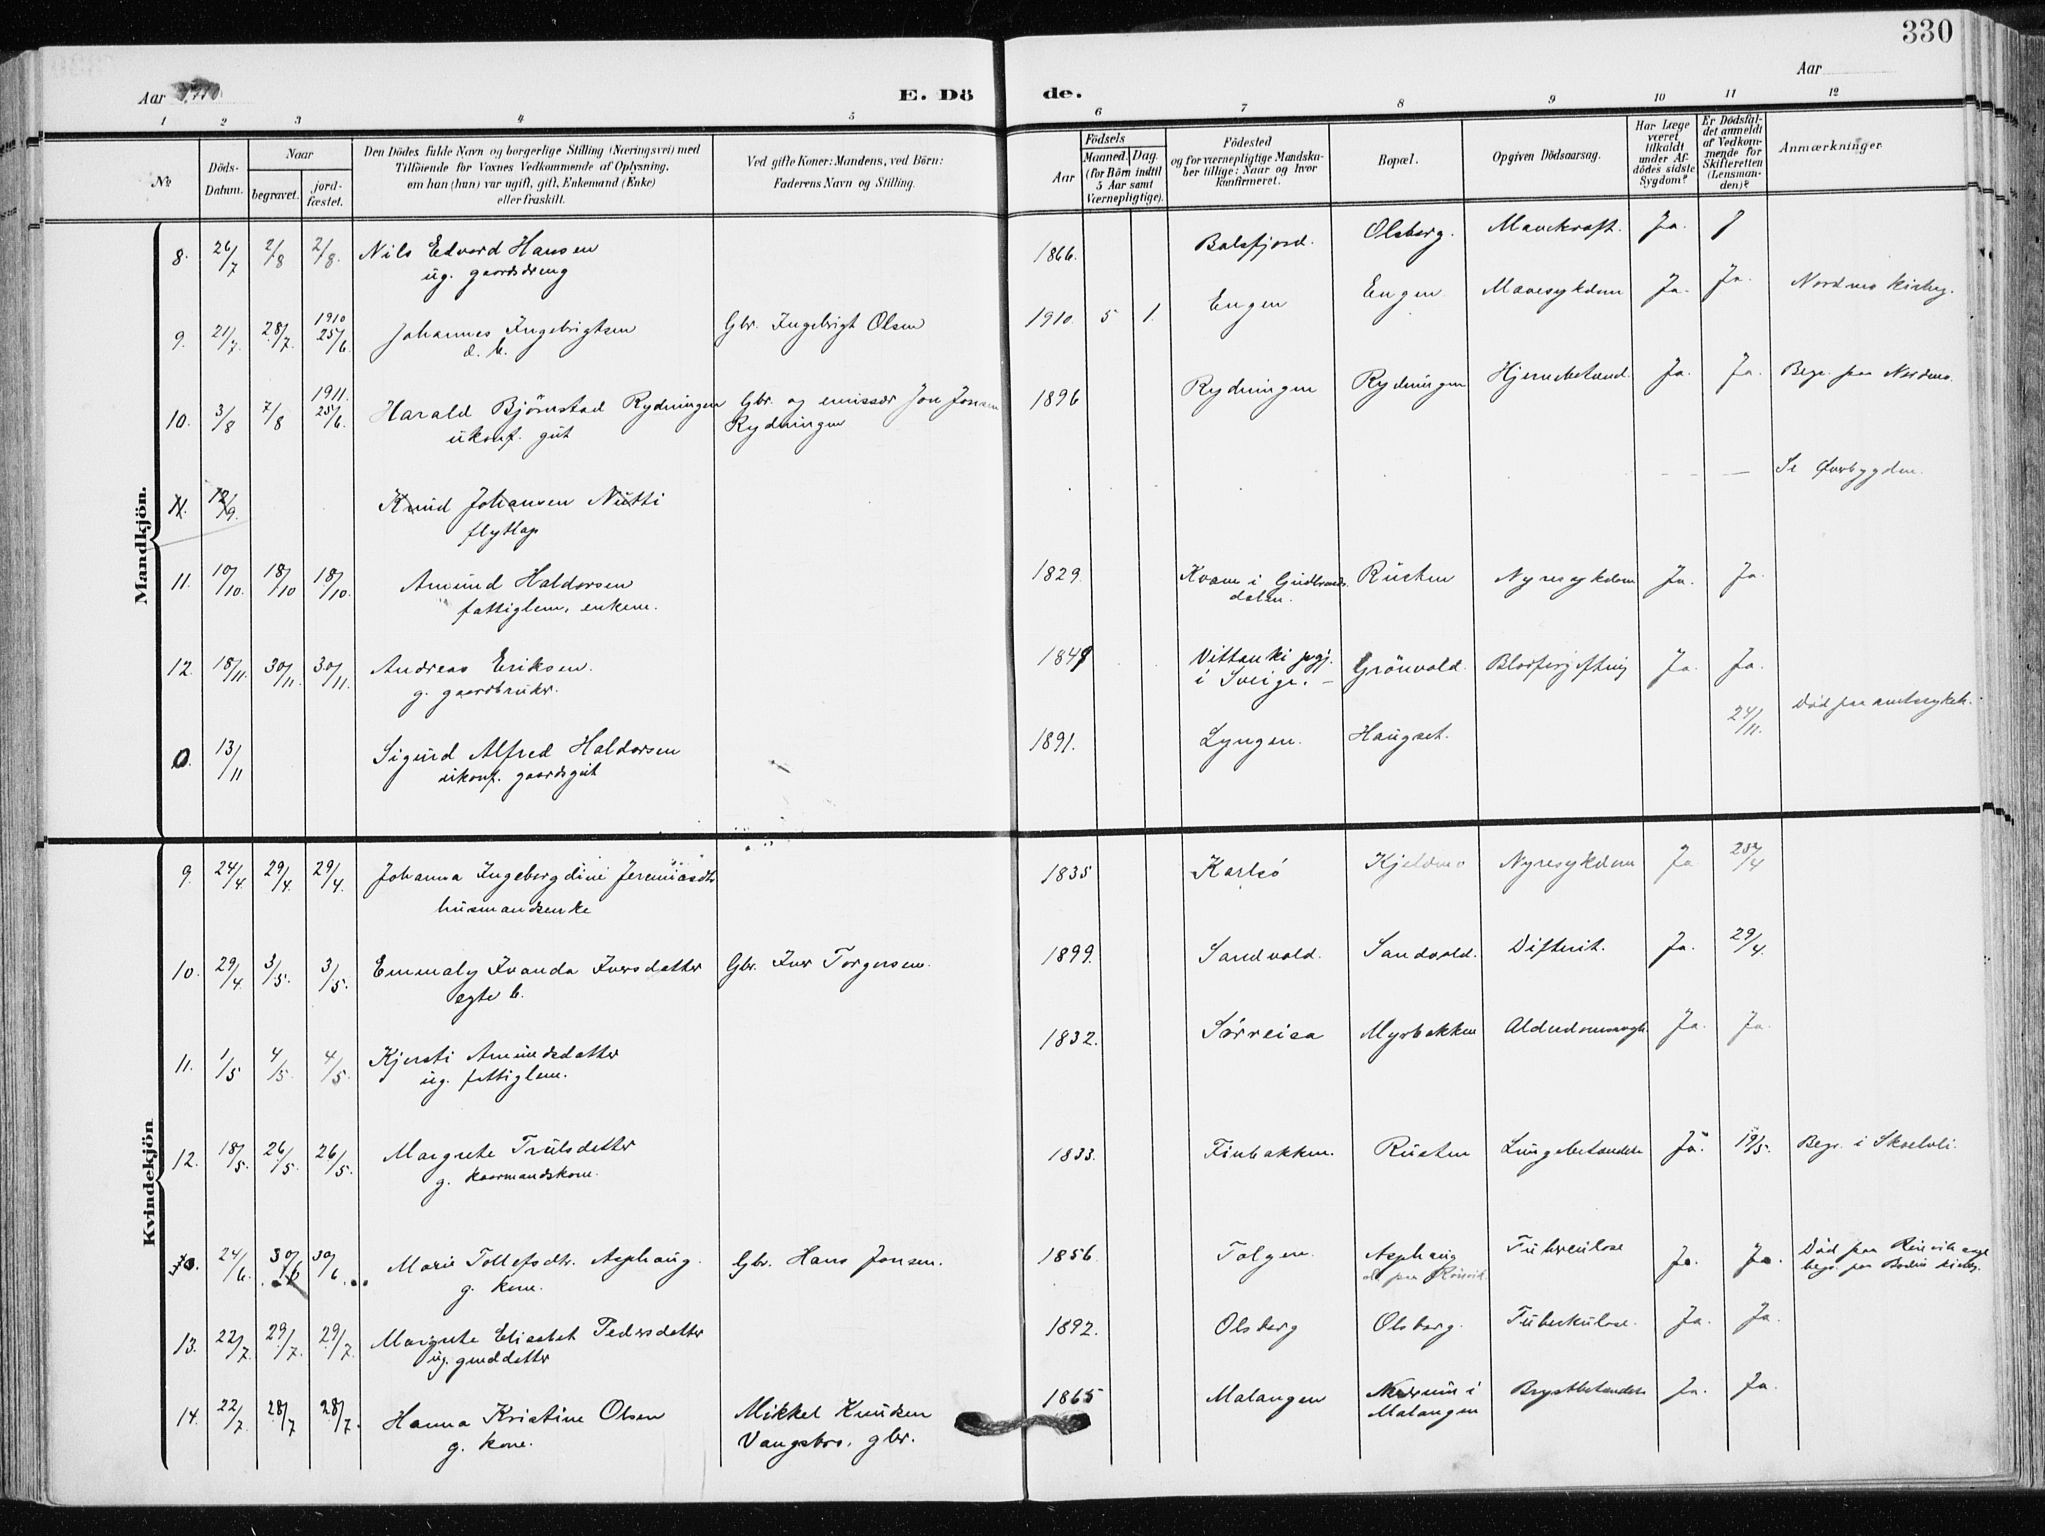 330
Aar 1910
E. Dö
de.
Aar
1 2 3 4 5 6 7 8 9 10 11 12
No
Döds-
Datum.
Naar
begravet.
jord-
fæstet.
Den Dödes fulde Navn og borgerlige Stilling (Næringsvei) med
Tillöiende for Voxnes Vedkommende af Oplysning,
om han (hun) var ugift, gift, Enkemand (Enke)
eller fraskilt.
Ved gifte Koner: Mandens, ved Börn:
Faderens Navn og Stilling.
Födsels
Aar
Maaned. Dag.
(for Börn indtil
5 Aar samt
Værnepligtige).
Födested
og for værnepligtige Mandska-
ber tillige: Naar og hvor
konfirmeret.
Bopæl.
Opgiven Dödsaarsag.
Har Læge
været
tilkaldt
under Af-
dödes sidste
Sygdom?
Er Dödsfal-
det anmeldt
af Vedkom-
mende for
Skifteretten
(Lensman-
den)?
Anmærkninger
Mandkjön.
8. 26/7 2/8 2/8. Nils Edvard Hansen 1866. Balsfjord. Olsborg. Mavekræft. Ja.
ug. gaardsdreng
9. 21/7 28/7. 1910 25/6 Johannes Ingebrigtsen Gbr. Ingebrigt Olsen 1910. 5 1. Engen Engen Mavesykdom Ja. Ja. Nordmo kirkeg.
æ. b.
10. 3/8 7/8 1911. 25/6. Harald Björnstad Rydningen Gbr. og emissær Jon Jonsen 1896 Rydningen Rydningen Hjernebetænd. Ja. Ja. Begr. paa Nordmo.
ukonf. gut Rydningen
11. 12/9. Knud Johansen Nutti Se Øverbygden.
flytlap
11. 10/10. 18/10 18/10. Amund Haldorsen 1829. Kvam i Gudbrands- Rusten Nyresykdom Ja. Ja.
fattiglem, enkem. dalen.
12. 18/11. 30/11. 30/11. Andreas Eriksen. 1849 Vittanki pgj. Grönvold. Blodforgiftning Ja. Ja.
g. gaardbruker. i Sverige.
0. 13/11 Sigurd Alfred Haldorsen 1891. Lyngen. Haugset. 24/11. Död paa amtssykeh.
ukonf. gaardsgut
Kvindekjön
9. 24/4 29/4. 29/4. Johanna Ingeborgdine Jeremiasdtr 1835 Karlsö Kjeldmo Nyresykdom Ja 25/4
husmandsenke
10. 29/4 3/5. 3/5. Emmaly Ivanda Iversdatter Gbr. Iver Torgersen. 1899. Sandvold. Sandvold. Difterit. Ja. 29/4.
egte b.
11. 1/5 4/5. 4/5. Kjersti Amundsdatter 1832. Sørreisa Myrbakken Alderdomssvagh. Ja. Ja.
ug. fattiglem.
12. 18/5. 26/5. 26/5. Margrete Trulsdatter 1833. Finbakken. Rusten Lungebetændelse Ja. 19/5. Begr. i Skoelvli.
g. kaarmandskone.
24/6. 30/6 30/6. Marie Tollefsdtr. Asphaug. Gbr. Hans Jonsen. 1856. Tolgen. Asphaug Tuberkulose Ja. Ja. Död paa Reinvik asyl
g. kone. d. paa Rönvik. begr. paa Bodin kirkeg.
13. 22/7 29/7. 29/7. Margrete Elisabet Pedersdatter 1892. Olsborg Olsborg. Tuberkulose. Ja. Ja.
ug. gmd datter
14. 22/7. 28/7 28/7. Hanna Kristine Olsen Mikkel Knudsen 1865 Malangen Navaren i Brystbetændelse Ja. Ja.
g. kone. Vangsbro, gbr. Malangen